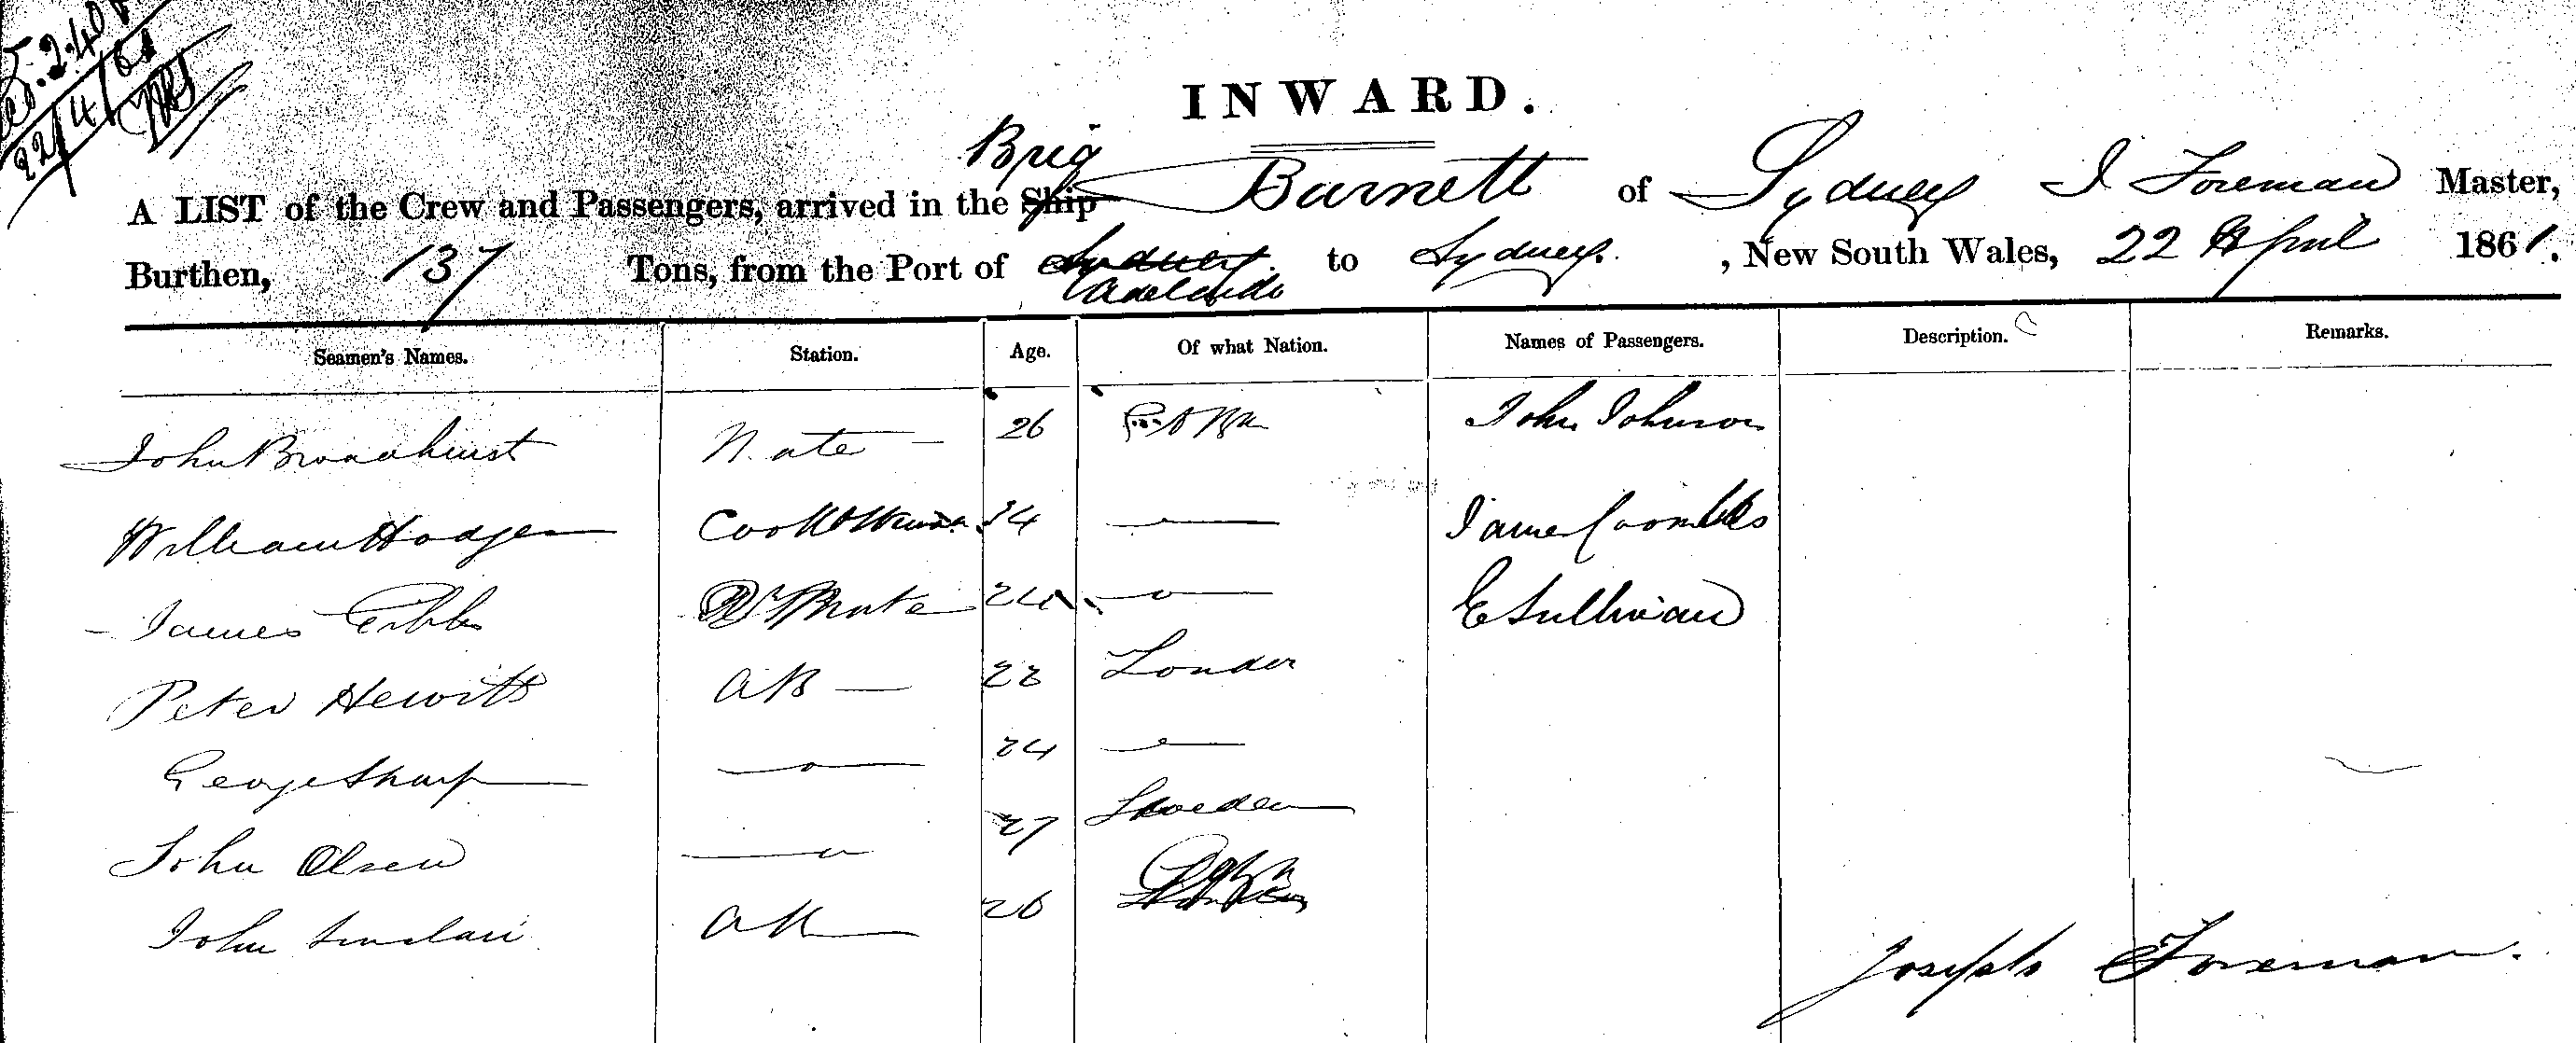 22/4/61
INWARD.
Brig
A LIST of the Crew and Passengers, arrived in the Ship Burnett of Sydney J Foreman Master,
Burthen, 137 Tons, from the Port of Sydney to Sydney, New South Wales, 22 April 1861.
Adelaide
Seamen's Names. Station. Age. Of what Nation. Names of Passengers. Description. Remarks.
John Broadhurst Mate 26 John Johnson
William Hodge Cook 34 James Coombes
James Gibbs Mate 24 E Sullivan
Peter Hewitt AB 22 London
George Sharp 24
John Olsen 27 Sweden
John Sinclair AB 26
Joseph Foreman.